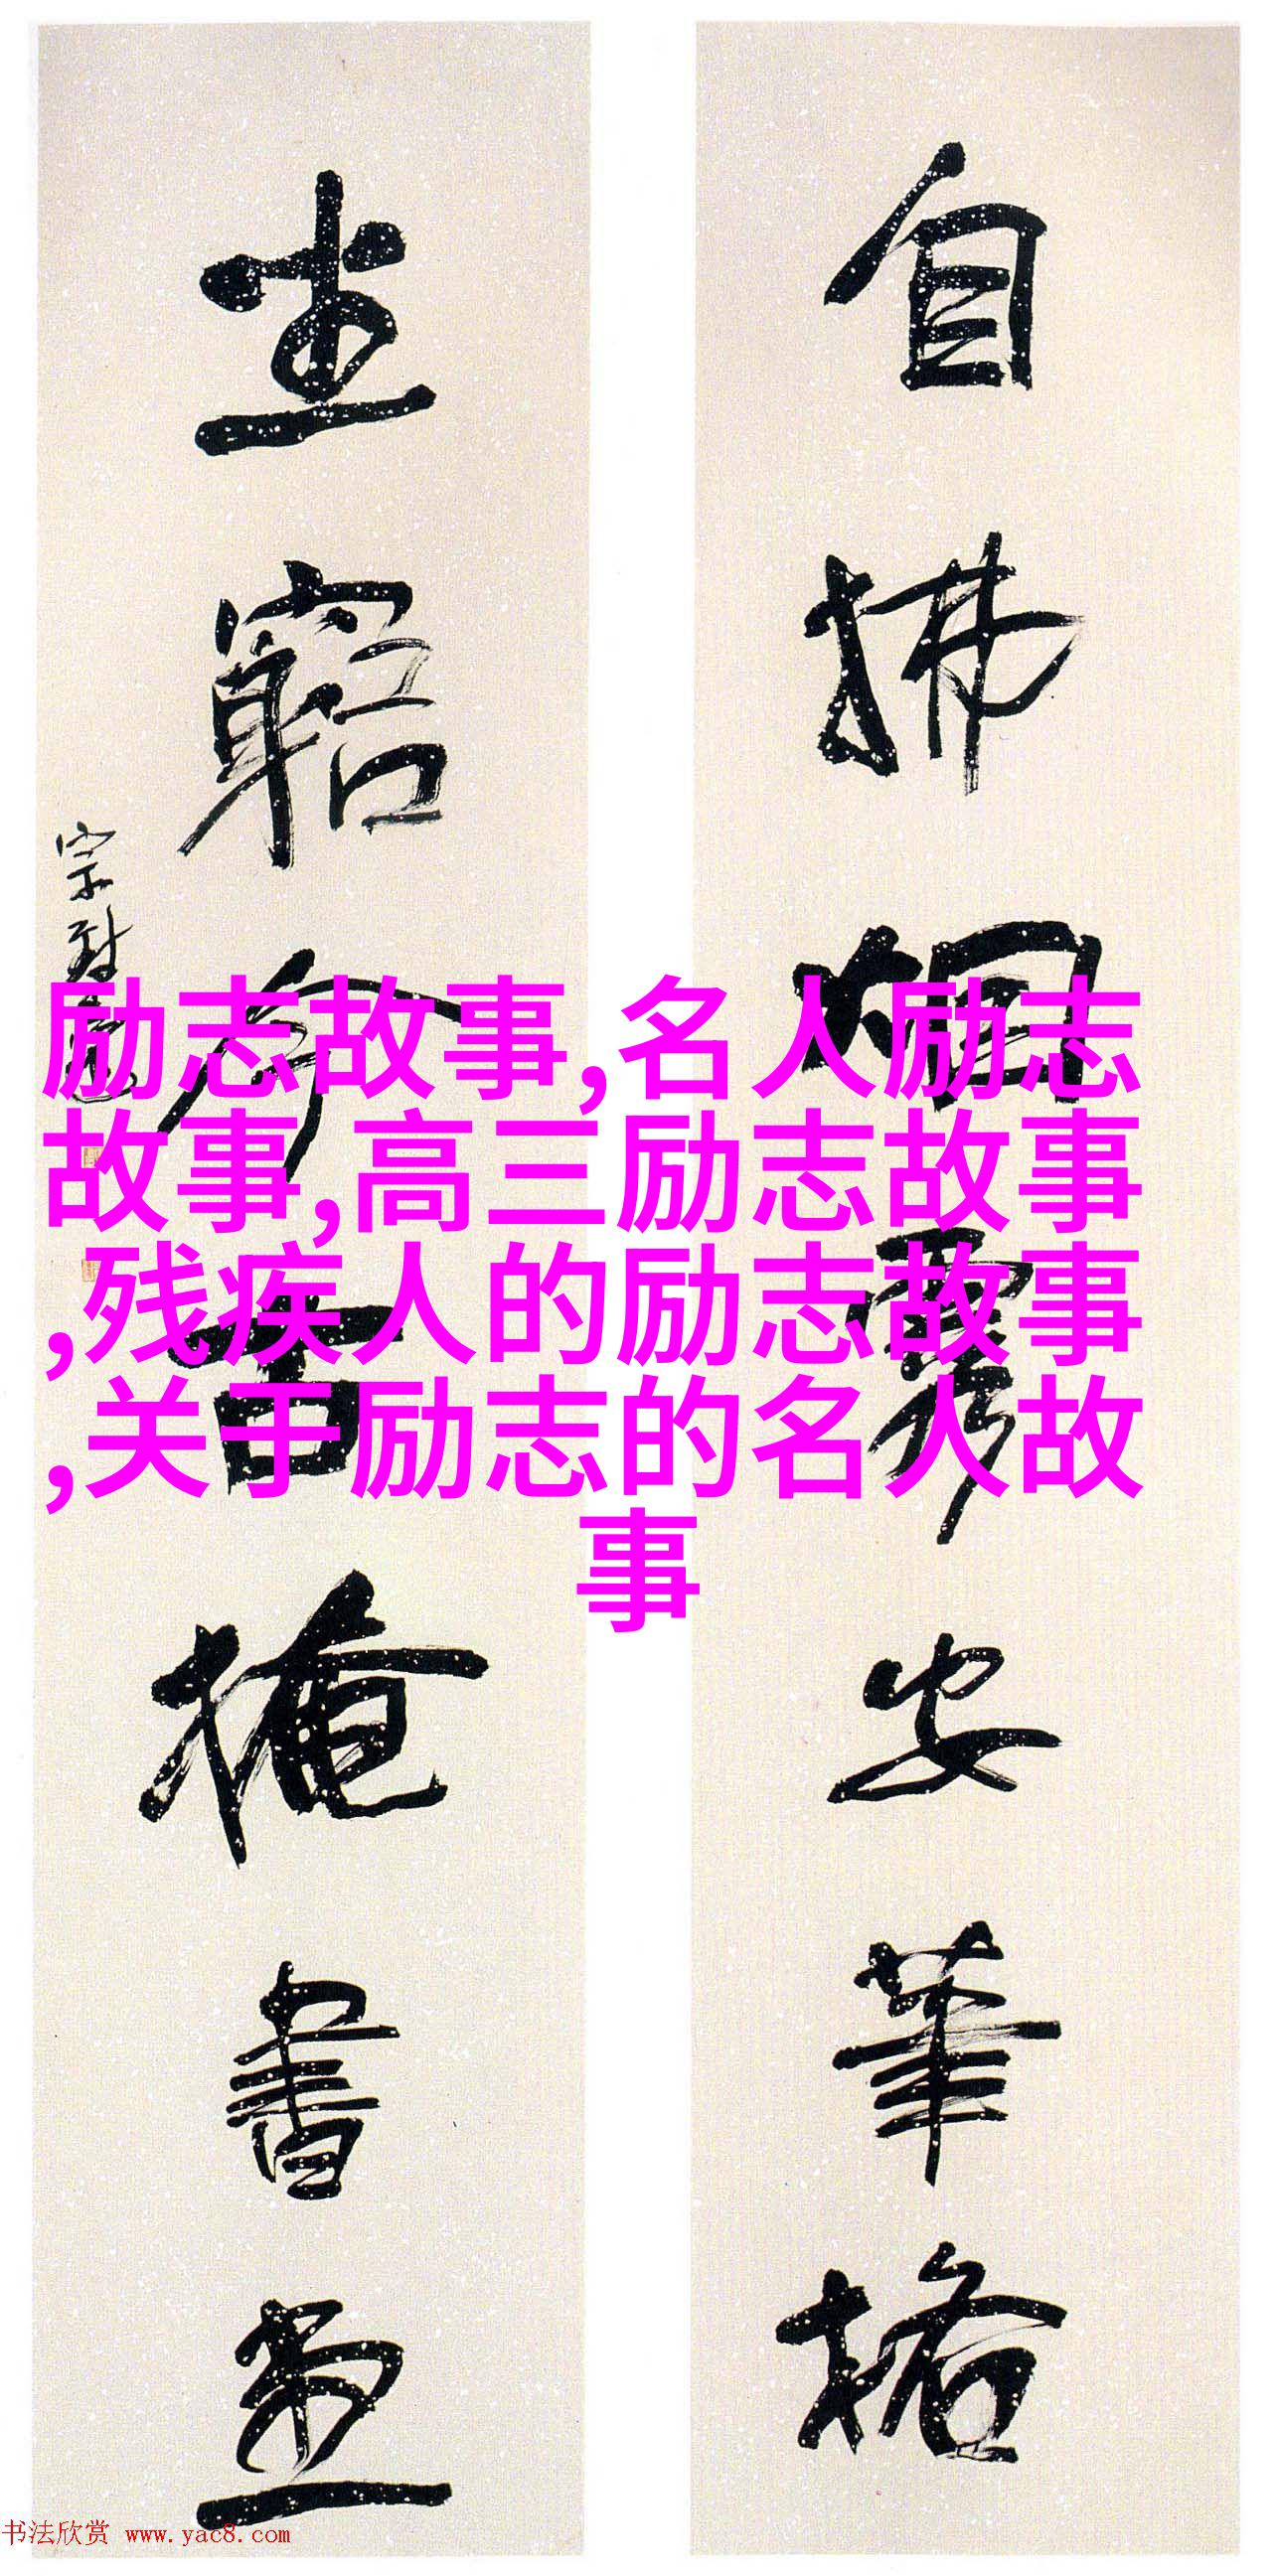 自拂烟霞安筆格
坐窮今古掩書堂
励志故事,名人励志
故事,高三励志故事
,残疾人的励志故事
,关于励志的名人故
事
书法欣赏 www.yac8.com